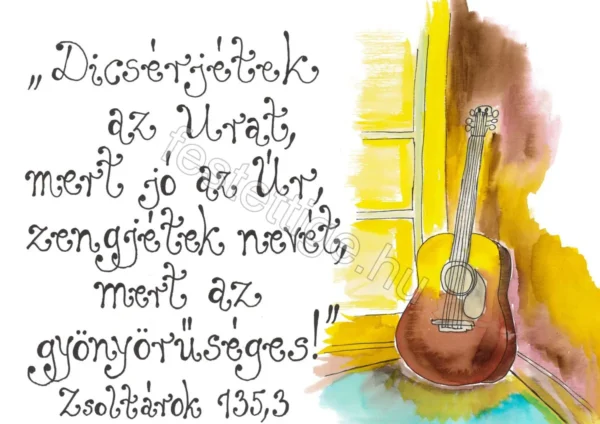 „Dicsérjétek
az Urat,
mert jo az Úr,
zengjétek nevét,
mert az
gyönyörűséges!"
Zsoltárok 135,3
festettige.hu